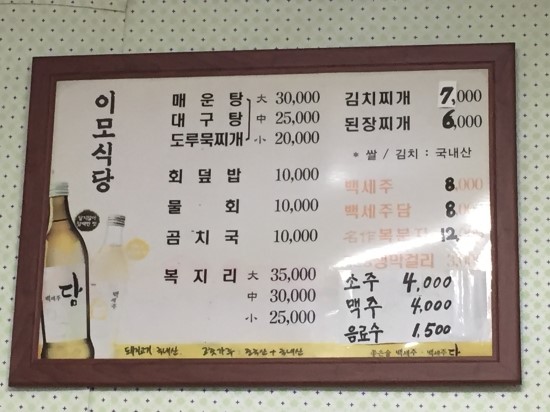 이모식당
매운탕 大 30,000
대구탕 中 25,000
도루묵찌개 小 20,000
회덮밥 10,000
물회 10,000
곰치국 10,000
복지리 大 35,000
中 30,000
小 25,000
김치찌개 7,000
된장찌개 6,000
* 쌀 / 김치 : 국내산
백세주 8,000
백세주담 8,000
복분자 12,000
막걸리
소주 4,000
맥주 4,000
음료수 1,500
담
백세주
돼지고기 국내산
중국산 + 국내산
좋은술 백세주 · 백세주담